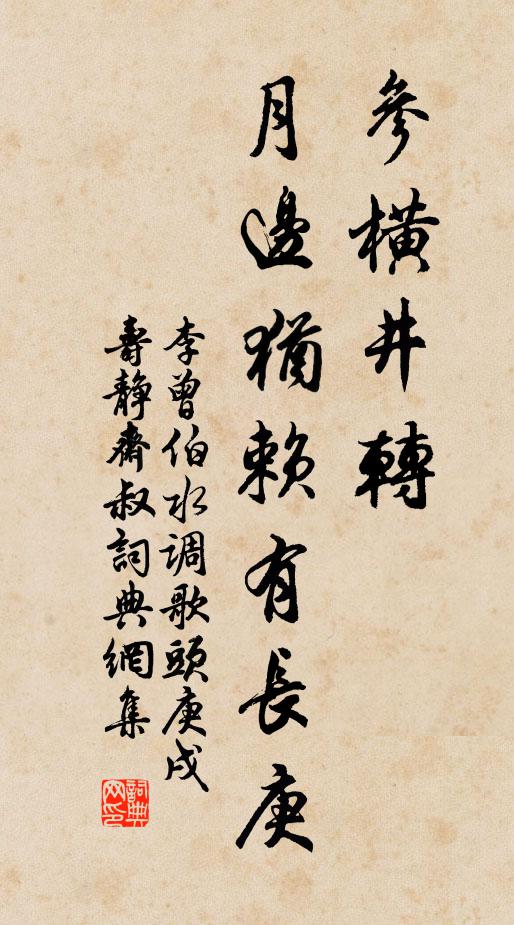 參橫井轉
月邊猶賴有長庚
李曾伯水调歌頭庚戌
壽靜齋叔詞典網集
詞典网印